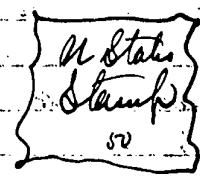 U States
Stamp
50